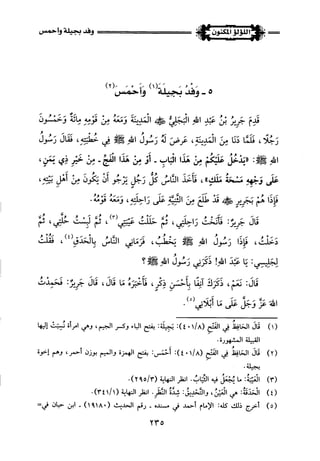 اللؤلؤ المكنون
وفد بجيلة وأحمس
٥ - وَفْدُ بَجِيلَةَ(١) وَأَحْمَسَ(٢)
قَدِمَ جَرِيرُ بْنُ عَبْدِ اللهِ الْبَجَلِيُّ ﷺ الْمَدِينَةَ وَمَعَهُ مِنْ قَوْمِهِ مِائَةٌ وَخَمْسُونَ
رَجُلًا، فَلَمَّا دَنَا مِنَ الْمَدِينَةِ، عَرَضَ لَهُ رَسُولُ اللهِ ﷺ فِي خُطْبَتِهِ، فَقَالَ رَسُولُ
اللهِ ﷺ: «يَدْخُلُ عَلَيْكُمْ مِنْ هَذَا الْبَابِ - أَوْ مِنْ هَذَا الْفَجِّ - مِنْ خَيْرِ ذِي يَمَنٍ،
عَلَى وَجْهِهِ مَسْحَةُ مَلَكٍ»، فَأَخَذَ النَّاسُ كُلُّ رَجُلٍ يَرْجُو أَنْ يَكُونَ مِنْ أَهْلِ بَيْتِهِ،
فَإِذَا هُمْ بِجَرِيرٍ ﷺ قَدْ طَلَعَ مِنَ الثَّنِيَّةِ عَلَى رَاحِلَتِهِ، وَمَعَهُ قَوْمُهُ.
قَالَ جَرِيرٌ: فَأَنَخْتُ رَاحِلَتِي، ثُمَّ حَلَلْتُ عَيْبَتِي(٣)، ثُمَّ لَبِسْتُ حُلَّتِي، ثُمَّ
دَخَلْتُ، فَإِذَا رَسُولُ اللهِ ﷺ يَخْطُبُ، فَرَمَانِي النَّاسُ بِالْحَدَقِ(٤)، فَقُلْتُ
لِجَلِيسِي: يَا عَبْدَ اللهِ! ذَكَرَنِي رَسُولُ اللهِ ﷺ؟
قَالَ: نَعَمْ، ذَكَرَكَ آنِفًا بِأَحْسَنِ ذِكْرٍ، فَأَخْبَرَهُ مَا قَالَ، قَالَ جَرِيرٌ: فَحَمِدْتُ
اللهَ عَزَّ وَجَلَّ عَلَى مَا أَبْلَانِي(٥).
(١) قَالَ الحَافِظُ فِي الفَتْحِ (٤٠١/٨): بَجِيلَةُ: بفتح الباء وكسر الجيم، وهي امرأة نُسِبَتْ إليها
القبيلة المشهورة.
(٢) قَالَ الحَافِظُ فِي الفَتْحِ (٤٠١/٨): أَحْمَسُ: بفتح الهمزة والميم بوزن أحمر، وهم إخوة
بجيلة.
(٣) العَيْبَةُ: ما يُجْعَلُ فيه الثِّيَابُ. انظر النهاية (٢٩٥/٣).
(٤) الحَدَقَةُ: هي العَيْنُ، والتَّحْدِيقُ: شِدَّةُ النَّظَرِ. انظر النهاية (٣٤١/١).
(٥) أخرج ذلك كله: الإمام أحمد في مسنده - رقم الحديث (١٩١٨٠) - ابن حبان في=
٢٣٥